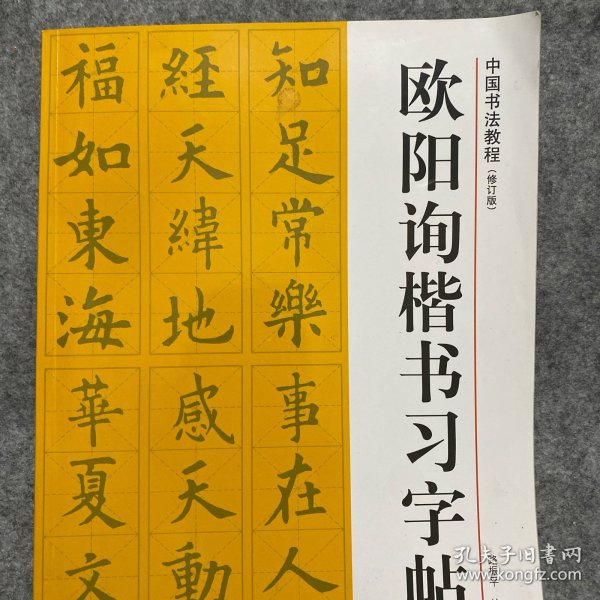 中国书法教程（修订版）
欧阳询楷书习字帖
知足常樂
事在人
經天緯地
感天動
福如東海
華夏文
孔夫子旧书网
www.kongfz.com